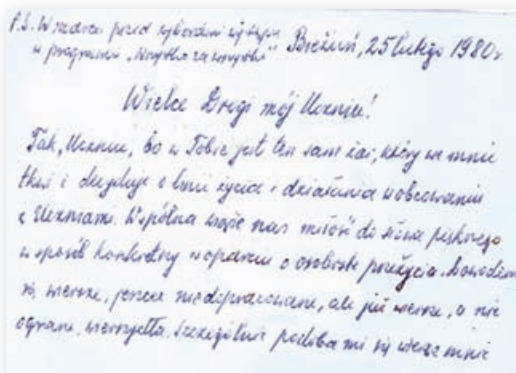 P.S. W środę przed wyborami wystąpię
w programie „Wszystko za wszystko” Bieżuń, 25 lutego 1980 r.
Wielce Drogi mój Uczniu!
Tak, Uczniu, bo w Tobie jest ten sam żar, który we mnie
tkwi i decyduje o linii życia i działania w obcowaniu
z Uczniami. Wspólna wiąże nas miłość do słowa pięknego
w sposób konkretny w oparciu o osobiste przeżycia. Dowodem
są wiersze, jeszcze niedopracowane, ale już wiersze, a nie
ograne, wierszydła. Szczególnie podoba mi się wiersz mnie